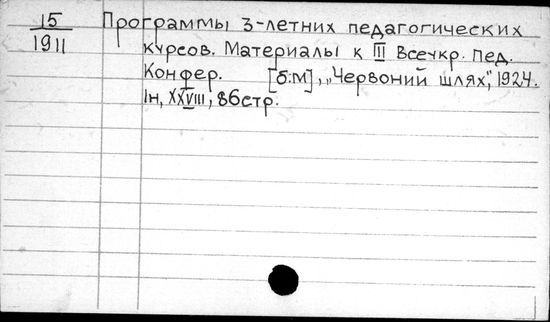 15 Программы 3-летних педагогических
1911 курсов. Материалы к III Всеукр. Пед.
Конфер. [б.м], „Червоний шлях", 1924.
Ін, XXVIII, 86стр.